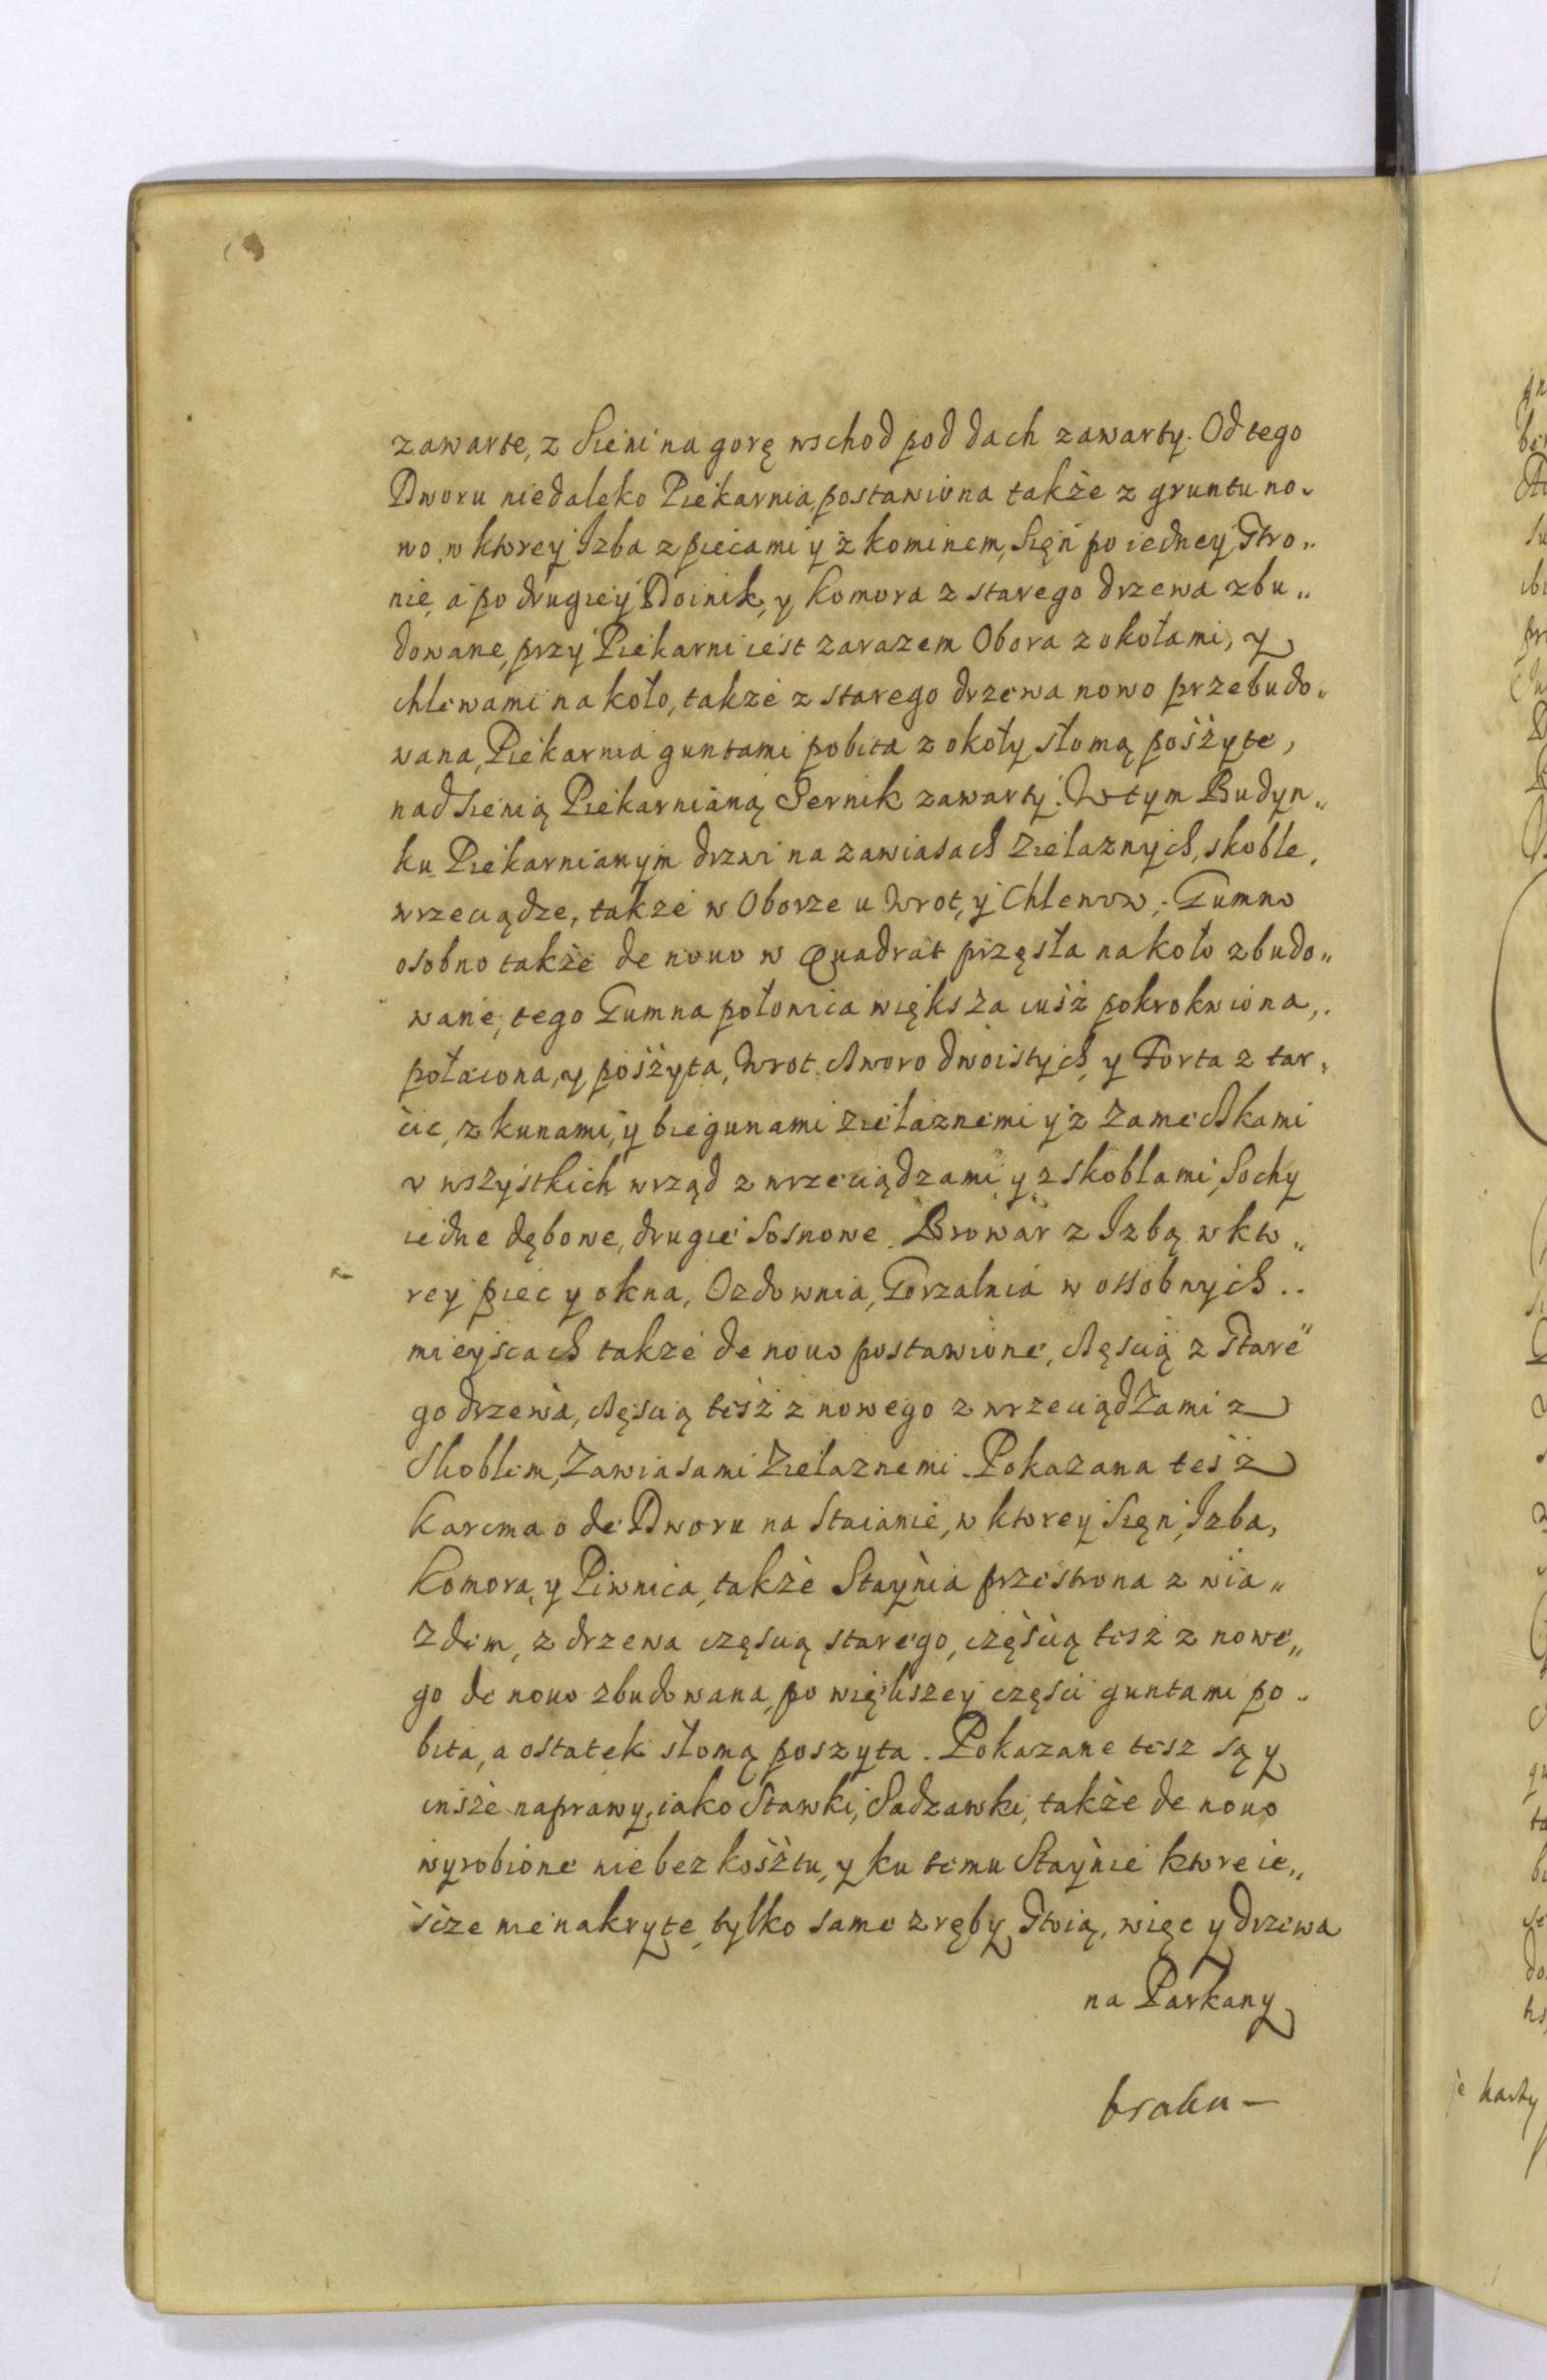 zawarte, z Sieni na gorę wschod pod dach zawarty. Od tego
Dworu niedaleko Piekarnia, postawiona także z gruntu no„
wo, w ktorey Izba z piecami y z kominem, Sięń po iedney stro„
nie, a po drugiey Doinik, y Komora z starego drzewa zbu„
dowane, przy Piekarni iest zarazem Obora z okołami, y
chlewami na koło, także z starego drzewa nowo przebudo„
wana, Piekarnia guntami pobita z okoły słomą poszyte,
nad sienią Piekarnianą Sernik zawarty. W tym Budyn„
ku Piekarnianym drzwi na zawiasach zielaznych, skoble,
wrzeciądze, także w Oborze u Wrot, y Chlewow, Gumno
osobno także de nouo w Quadrat przęsła na koło zbudo„
wane, tego Gumna połowica większa iusz pokrokwiona,
połacona, y poszyta, Wrot czworo dwoistych, y Forta z tar„
cic, z kunami, y biegunami zielaznemi y z zameczkami
v wszystkich wrząd z wrzeciądzami y z skoblami, Sochy
iedne dębowe, drugie sosnowe. Browar z Izbą w kto„
rey piec y okna, Ozdownia, Gorzalnia w ossobnych
mieyscach także de nouo postawione, częscią z stare„
go drzewa, częscią tesz z nowego z wrzeciądzami z
Skoblem, Zawiasami Zielaznemi. Pokazana tesz
Karcma ode Dworu na Staianie, w ktorey Sięń, Izba,
Komora, y Piwnica, także Staynia przestrona z wia„
zdem, z drzewa częscią starego, częscią tesz z nowe„
go de nouo zbudowana, po większey części guntami po„
bita, a ostatek słomą poszyta. Pokazane tesz są y
insze naprawy, iako Stawki, Sadzawki, także de nouo
wyrobione nie bez kosztu, y ku temu Staynie ktore ie„
scze nie nakryte, tylko same zręby stoią, więc y drzewa
na Parkany
braku —